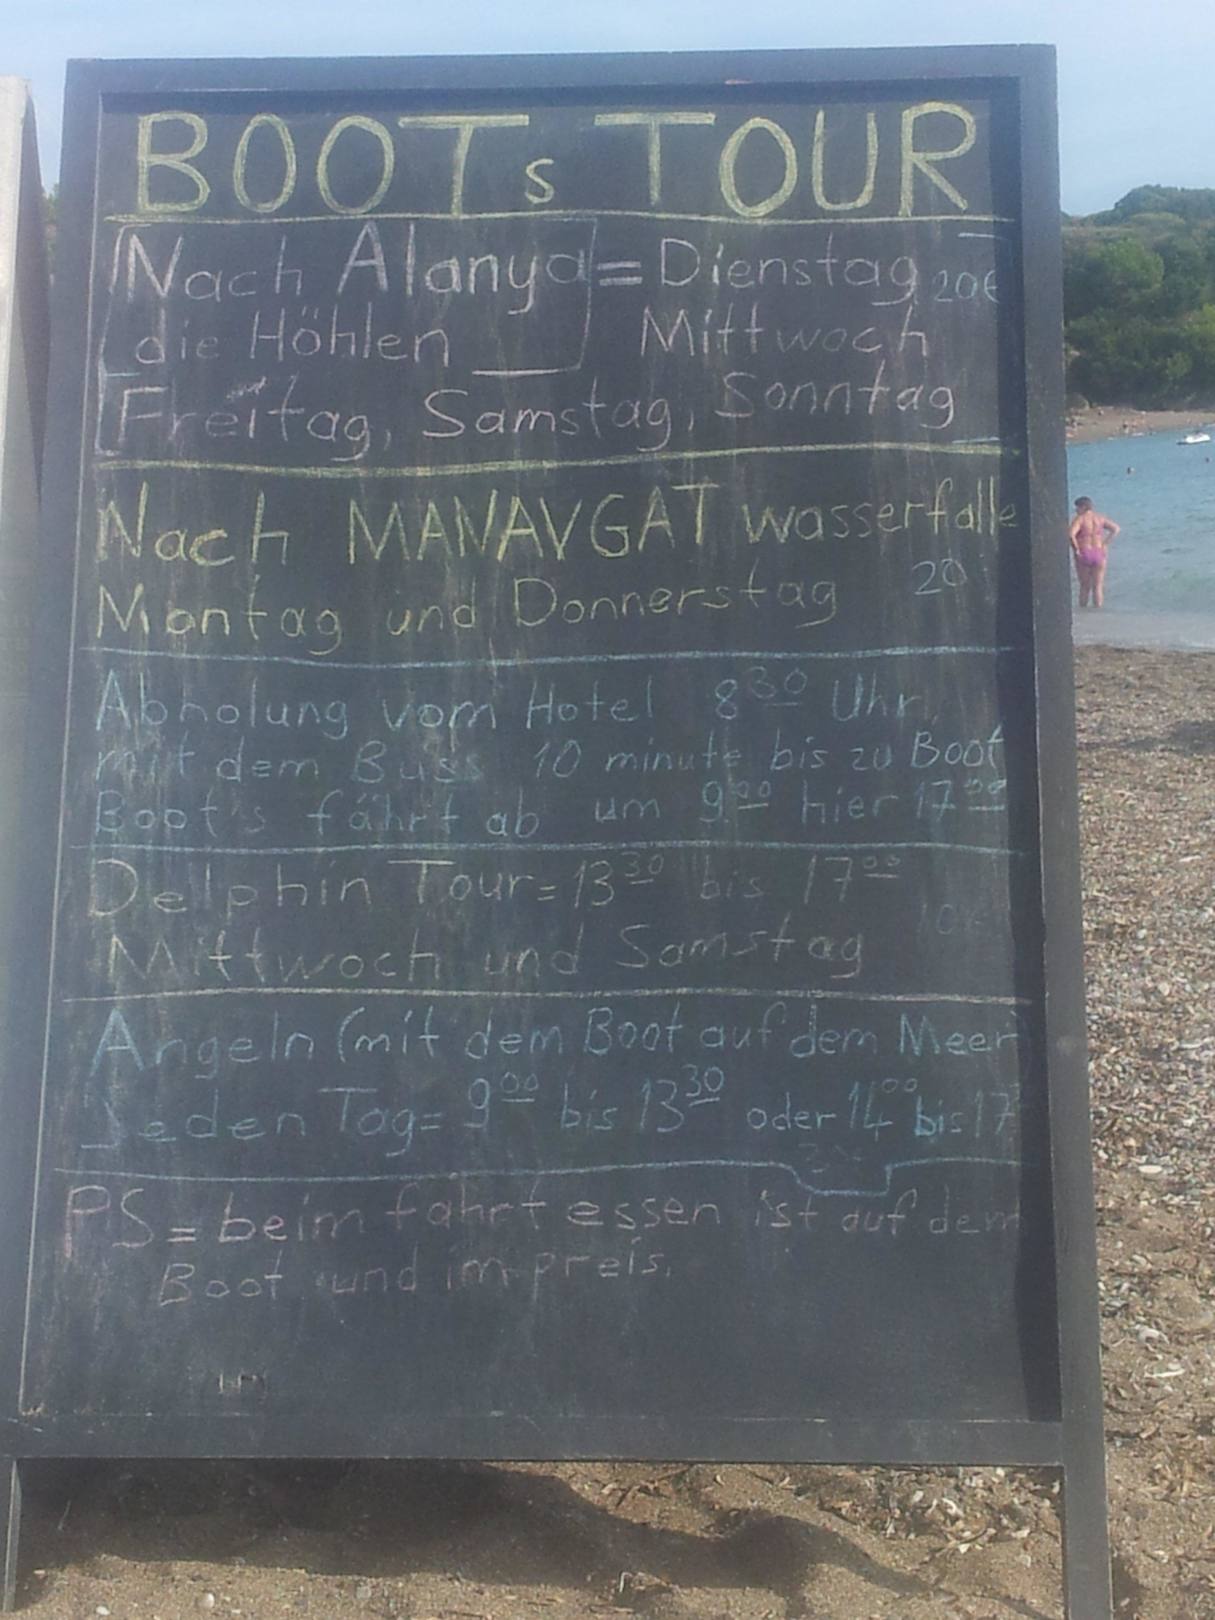 BOOTs TOUR
Nach Alanya = Dienstag 20€
die Höhlen Mittwoch
Freitag, Samstag, Sonntag
Nach MANAVGAT wasserfalle
Montag und Donnerstag 20
Abholung vom Hotel 8 30 Uhr
mit dem Buss 10 minute bis zu Boot
Boot's fährt ab um 9 00 hier 17 00
Delphin Tour = 13 30 bis 17 00
Mittwoch und Samstag
Angeln (mit dem Boot auf dem Meer)
Jeden Tag = 9 00 bis 13 30 oder 14 00 bis 17
PS = beim fahrt essen ist auf dem
Boot und im preis.